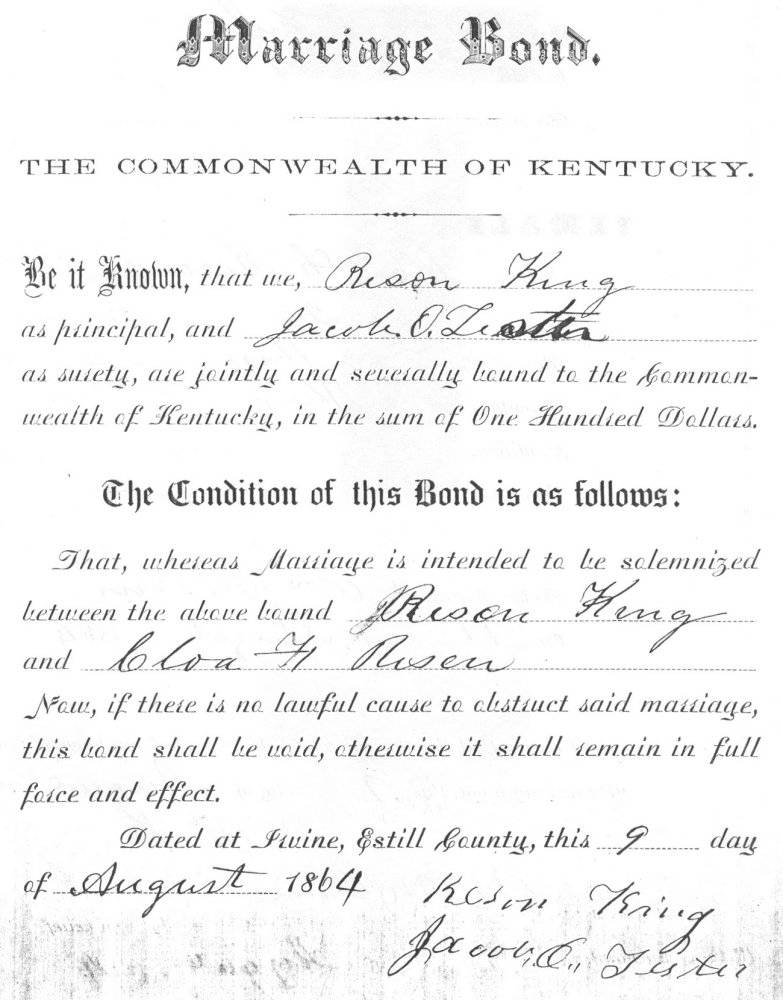 Marriage Bond.
THE COMMONWEALTH OF KENTUCKY.
Be it Known, that we, Reson King
as principal, and Jacob O. Tester
as surety, are jointly and severally bound to the Common-
wealth of Kentucky, in the sum of One Hundred Dollars.
The Condition of this Bond is as follows:
That, whereas Marriage is intended to be solemnized
between the above bound Reson King
and Cloa H Rosen
Now, if there is no lawful cause to obstruct said marriage,
this bond shall be void, otherwise it shall remain in full
force and effect.
Dated at Irvine, Estill County, this 9 day
of August 1864
Reson King
Jacob, O., Tester